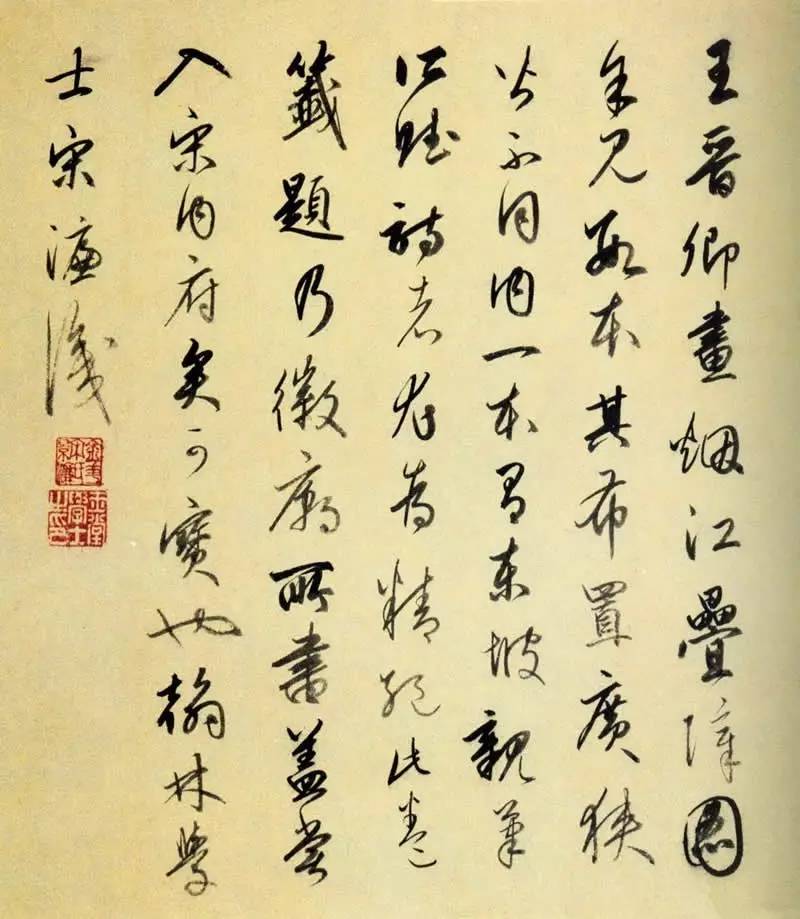 王晋卿畫烟江疊障圖
余見數本其布置廣狹
皆不同内一本有東坡親筆
所賦詩者尤為精絶此卷
籤題乃徽廟所書蓋嘗
入宋内府矣可寶也翰林學
士宋濂識